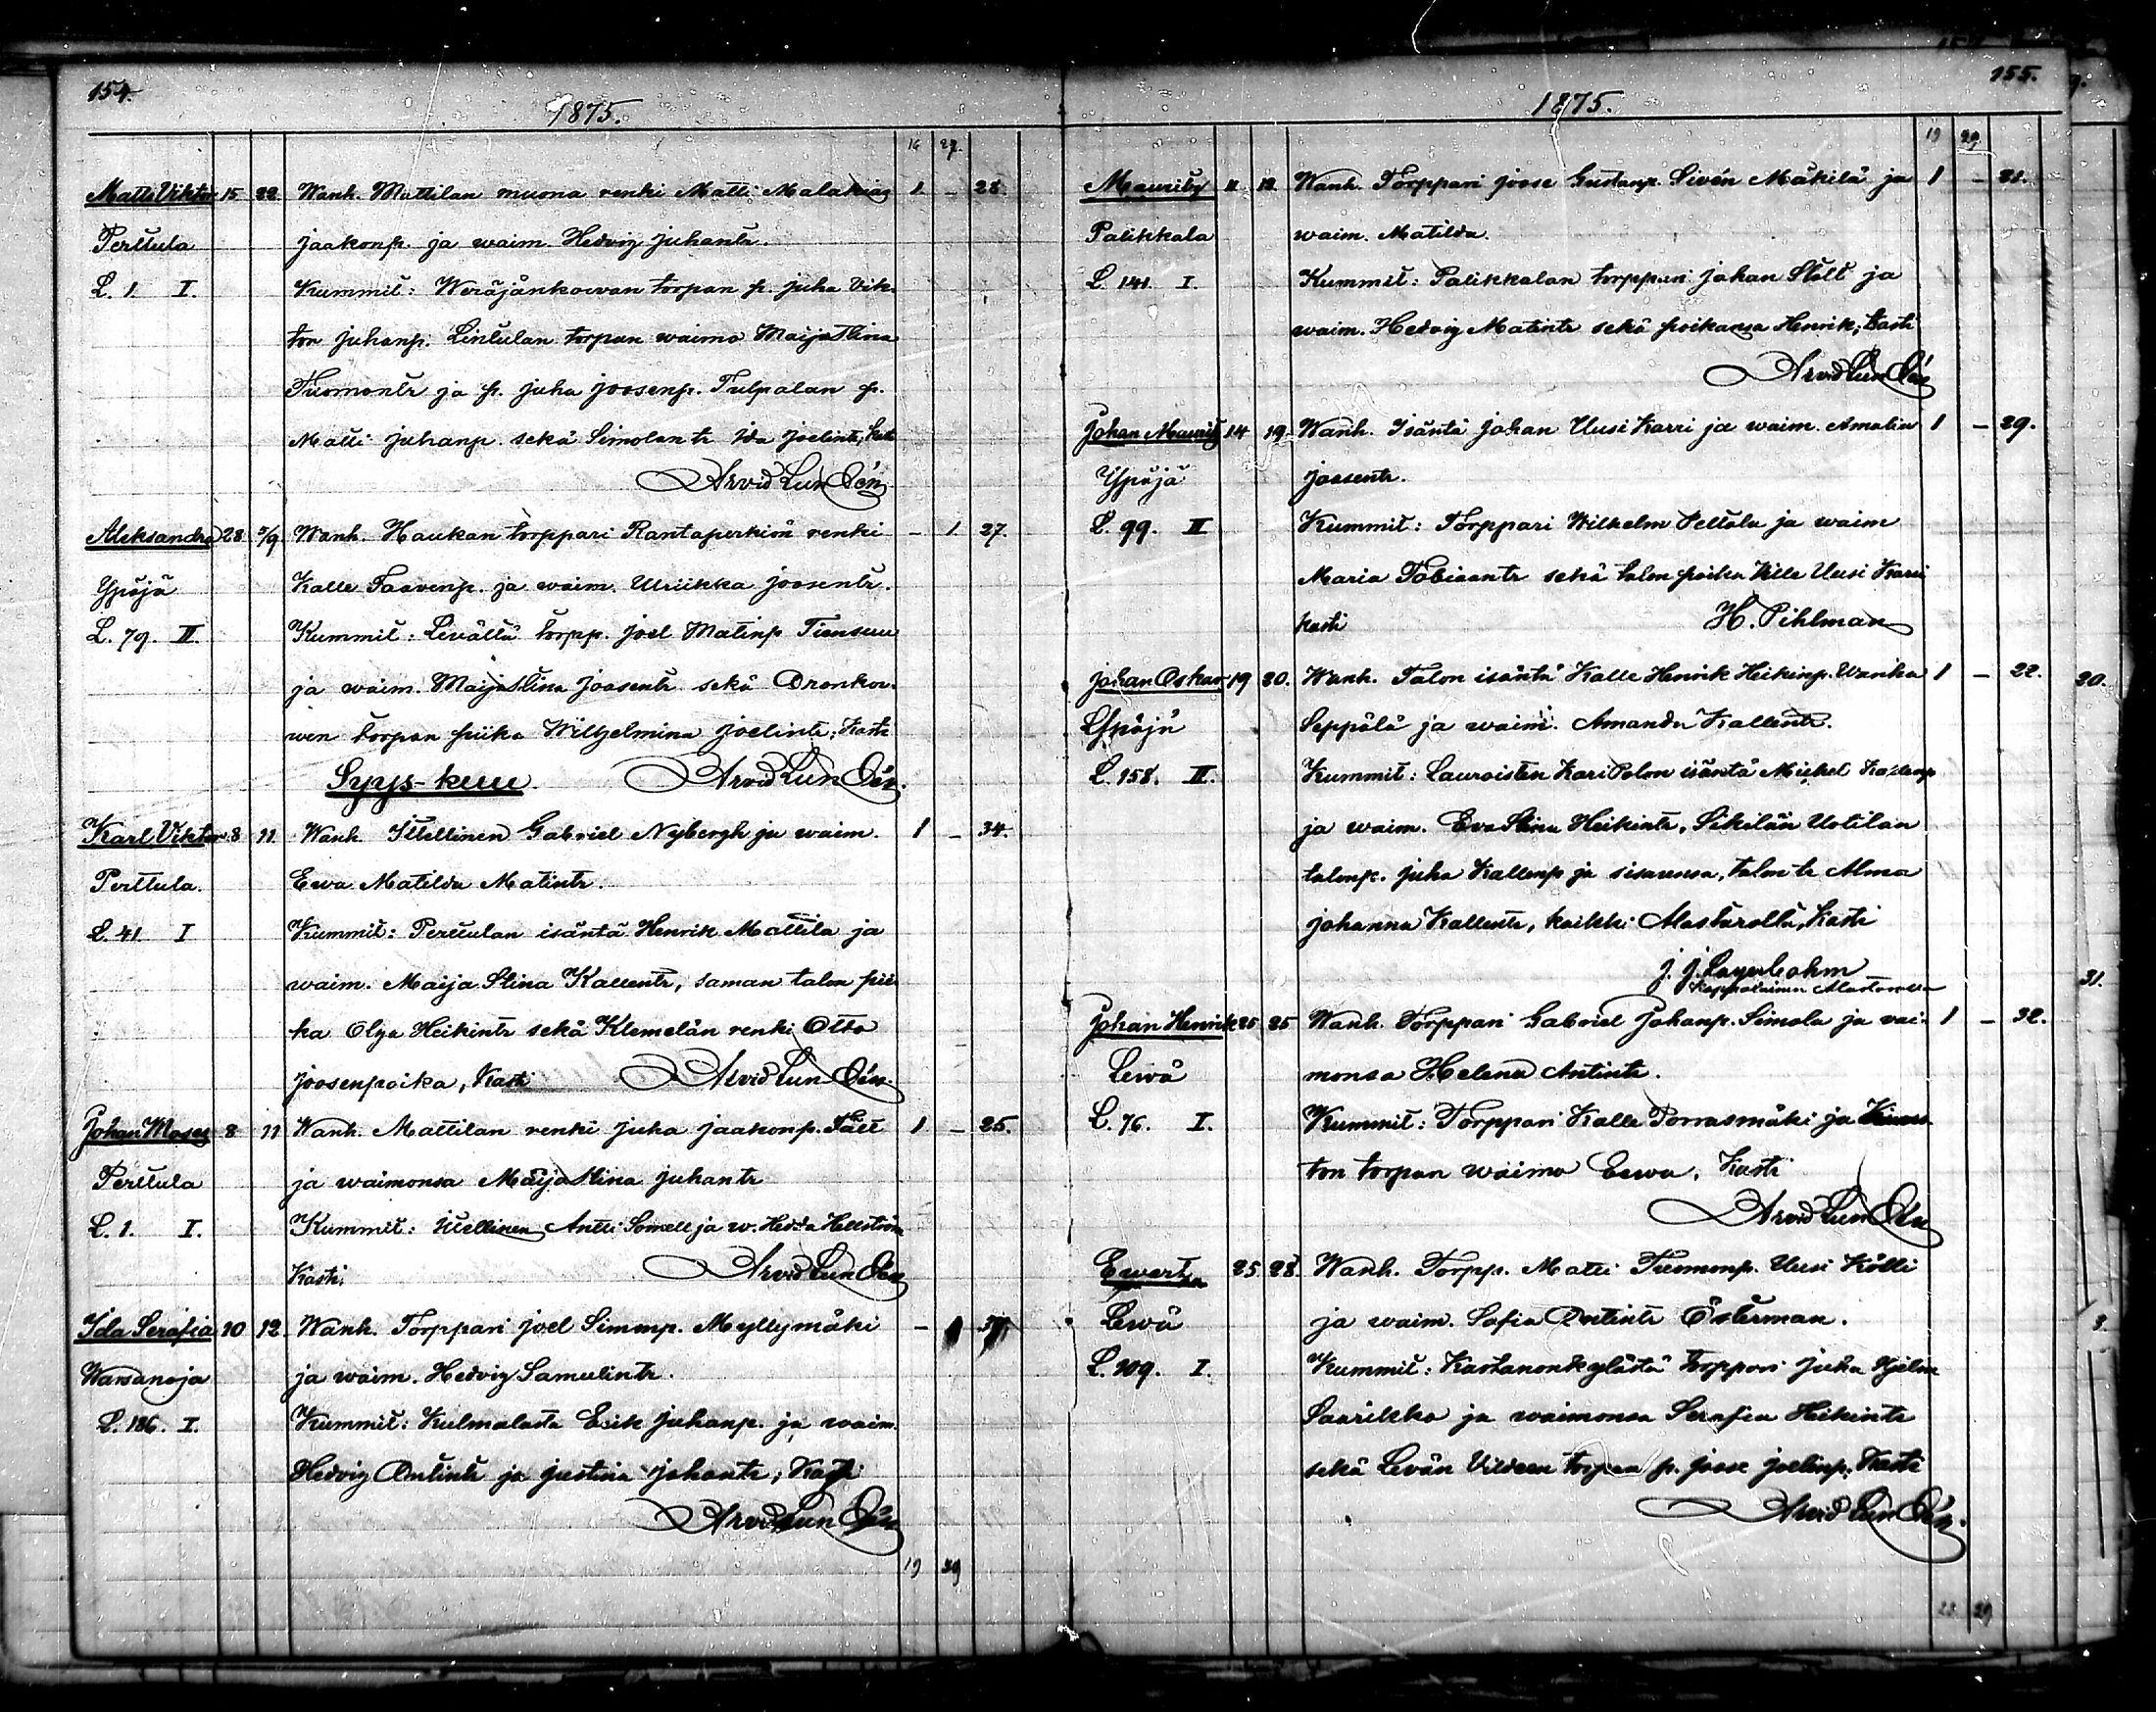 154.
1875.
16 27.
Matts Viktor 15 22 Wanh. Mattilan muona renki Matti Malakias 1 – 28.
Perttula Jaakonp. ja waim. Hedvig Juhantr.
L. 1. I. Kummit: Weräjänkorvan torpan p. Juha Vik-
tor Juhanp. Lintulan torpan waimo Maija Stina
Tuomontr ja p. Juha Joosenp. Tulpalan p.
Matti Juhanp. sekä Simolan tr Ida Joelintr, Kasti
Arvid Lundén
Aleksandra 28 5/9 Wanh. Haukan torppari Rantaperkiön renki – 1 27.
Ypäjä Kalle Taavenp. ja waim. Ulriikka Joosentr.
L. 79. II. Kummit: Levältä torpp. Joel Matinp
ja waim. Maija Stina Joosentr sekä
wen torpan piika Wilhelmina Joelintr, Kasti
Syys-kuu. Arvid Lundén.
Karl Viktor 8 11. Wanh. Itsellinen Gabriel Nybergh ja waim. 1 – 34.
Perttula. Ewa Matilda Matintr.
L. 41. I Kummit: Perttulan isäntä Henrik Mattila ja
waim. Maija Stina Kallentr, saman talon pii-
ka Olga Heikintr sekä Klemelän renki Otto
Joosenpoika, Kasti Arvid Lundén.
Johan Moses 8 11 Wanh. Mattilan renki Juha Jaakonp. 1 – 25.
Perttula ja waimonsa Maija Stina Juhantr
L. 1. I. Kummit: Itsellinen Antti Somell ja w. Hedda Hellström
Kasti. Arvid Lundén
Ida Serafia 10 12 Wanh. Torppari Joel Simonp. Myllymäki – 1
Warsanoja ja waim. Hedvig Samulintr.
L. 186. I. Kummit: Kulmalasta Erik Juhanp. ja waim.
Hedvig Antintr ja Justina Johantr, Kasti
Arvid Lundén
19 29
155.
1875.
19 29
Mauritz 11. 12. Wanh. Torppari Joose Gustanp. Sivén Mäkilä ja 1 – 21.
Palikkala waim. Matilda.
L. 141. I. Kummit: Palikkalan torppari Johan Stolt ja
waim. Hedvig Matintr sekä poikansa Henrik, Kasti
Arvid Lundén
Johan Mauritz 14 19. Wanh. Isäntä Johan Uusi Karri ja waim. Amalia 1 – 29.
Ypäjä Joosentr.
L. 99. II Kummit: Torppari Wilhelm Peltola ja waim
Maria Tobiaantr sekä talon poika Wille Uusi Karri
kasti H. Pihlman
Johan Oskar 19 20. Wanh. Talon isäntä Kalle Henrik Heikinp. Wanha 1 – 22.
Ypäjä Seppälä ja waim. Amanda Kallentr.
L. 158. II. Kummit: Lauroisten Kari talon isäntä Mickel Kallenp
ja waim. Eva Stina Heikintr, Sikilän Uotilan
talonp. Juha Kallenp ja sisarensa, talon tr Alma
Johanna Kallentr, kaikki Alastarolta, Kasti
J. J. Lagerbohm
Kappalainen Alastarossa
Johan Henrik 25 25 Wanh. Torppari Gabriel Johanp. Simola ja vai- 1 – 32.
Lewä monsa Helena Antintr.
L. 76. I. Kummit: Torppari Kalle Porrasmäki ja
ton torpan waimo Eewa, Kasti
Arvid Lundén
Ewert 25. 28. Wanh. Torpp. Matti Tuomonp. Uusi Kölli
Lewä ja waim. Sofia Antintr Österman.
L. 109. I. Kummit: Kartanonkylästä torppari Juha
Saarikko ja waimonsa Serafia Heikintr
sekä Levän torpan p. Joose Joelinp, Kasti
Arvid Lundén.
23. 29
20.
31.